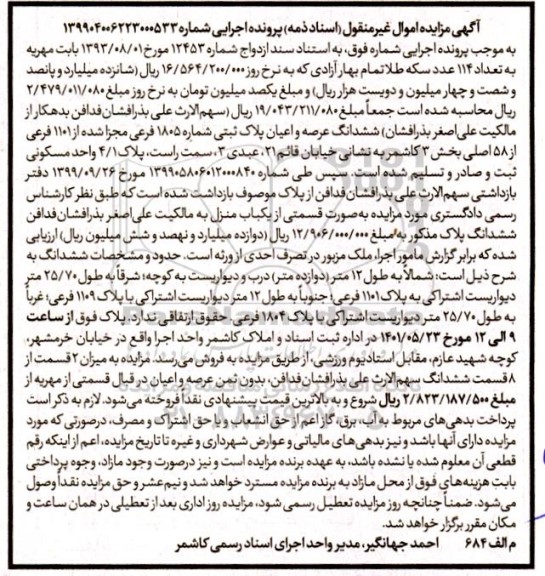 آگهی مزایده اموال غیرمنقول (اسناد ذمه) پرونده اجرایی شماره ۱۳۹۹۰۴۰۰۶۲۲۳۰۰۰۵۳۳
به موجب پرونده اجرایی شماره فوق، به استناد سند ازدواج شماره ۱۲۴۵۳ مورخ ۱۳۹۳/۰۸/۰۱ بابت مهریه
به تعداد ۱۱۴ عدد سکه طلا تمام بهار آزادی که به نرخ روز ۱۶/۵۶۴/۲۰۰/۰۰۰ ریال (شانزده میلیارد و پانصد
و شصت و چهار میلیون و دویست هزار ریال) و مبلغ یکصد میلیون تومان به نرخ روز مبلغ ۲/۴۷۹/۰۱۱/۰۸۰
ریال محاسبه شده است جمعاً مبلغ ۱۹/۰۴۳/۲۱۱/۰۸۰ ریال (سهم‌الارث علی بذرافشان فدافن بدهکار از
مالکیت علی‌اصغر بذرافشان) ششدانگ عرصه و اعیان پلاک ثبتی شماره ۱۸۰۵ فرعی مجزا شده از ۱۱۰۱ فرعی
از ۵۸ اصلی بخش ۳ کاشمر به نشانی خیابان قائم ۲۱، عبدی ۳، سمت راست، پلاک ۴/۱ واحد مسکونی
ثبت و صادر و تسلیم شده است. سپس طی شماره ۱۳۹۹۰۵۸۰۶۰۱۲۰۰۰۸۴۰ مورخ ۱۳۹۹/۰۹/۲۶ دفتر
بازداشتی سهم‌الارث علی بذرافشان فدافن از پلاک موصوف بازداشت شده است که طبق نظر کارشناس
رسمی دادگستری مورد مزایده به‌صورت قسمتی از یکباب منزل به مالکیت علی‌اصغر بذرافشان فدافن
ششدانگ پلاک مذکور به مبلغ ۱۲/۹۰۶/۰۰۰/۰۰۰ ریال (دوازده میلیارد و نهصد و شش میلیون ریال) ارزیابی
شده که برابر گزارش مأمور اجرا، ملک مزبور در تصرف احدی از ورثه است. حدود و مشخصات ششدانگ به
شرح ذیل است: شمالاً به طول ۱۲ متر (دوازده متر) درب و دیواریست به کوچه؛ شرقاً به طول ۲۵/۷۰ متر
دیواریست اشتراکی به پلاک ۱۱۰۱ فرعی؛ جنوباً به طول ۱۲ متر دیواریست اشتراکی با پلاک ۱۱۰۹ فرعی؛ غرباً
به طول ۲۵/۷۰ متر دیواریست اشتراکی با پلاک ۱۸۰۴ فرعی. حقوق ارتفاقی ندارد. پلاک فوق از ساعت
۹ الی ۱۲ مورخ ۱۴۰۱/۰۵/۲۳ در اداره ثبت اسناد و املاک کاشمر واحد اجرا واقع در خیابان خرمشهر،
کوچه شهید عازم، مقابل استادیوم ورزشی، از طریق مزایده به فروش می‌رسد. مزایده به میزان ۲ قسمت از
۸ قسمت ششدانگ سهم‌الارث علی بذرافشان فدافن، بدون ثمن عرصه و اعیان در قبال قسمتی از مهریه از
مبلغ ۲/۸۲۳/۱۸۷/۵۰۰ ریال شروع و به بالاترین قیمت پیشنهادی نقداً فروخته می‌شود. لازم به ذکر است
پرداخت بدهی‌های مربوط به آب، برق، گاز اعم از حق انشعاب و یا حق اشتراک و مصرف، درصورتی که مورد
مزایده دارای آنها باشد و نیز بدهی‌های مالیاتی و عوارض شهرداری و غیره تا تاریخ مزایده، اعم از اینکه رقم
قطعی آن معلوم شده یا نشده باشد، به عهده برنده مزایده است و نیز درصورت وجود مازاد، وجوه پرداختی
بابت هزینه‌های فوق از محل مازاد به برنده مزایده مسترد خواهد شد و نیم‌عشر و حق مزایده نقداً وصول
می‌شود. ضمناً چنانچه روز مزایده تعطیل رسمی شود، مزایده روز اداری بعد از تعطیلی در همان ساعت و
مکان مقرر برگزار خواهد شد.
م الف ۶۸۴ احمد جهانگیر، مدیر واحد اجرای اسناد رسمی کاشمر